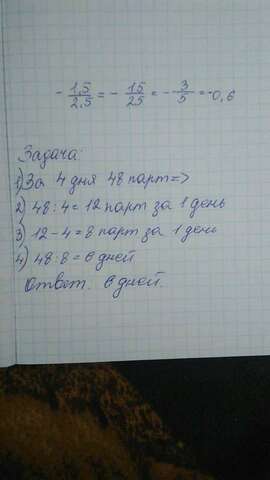 - 1,5/2,5 = - 15/25 = - 3/5 = -0,6
Задача:
1) За 4 дня 48 парт =>
2) 48 : 4 = 12 парт за 1 день
3) 12 - 4 = 8 парт за 1 день
4) 48 : 8 = 6 дней
Ответ. 6 дней.